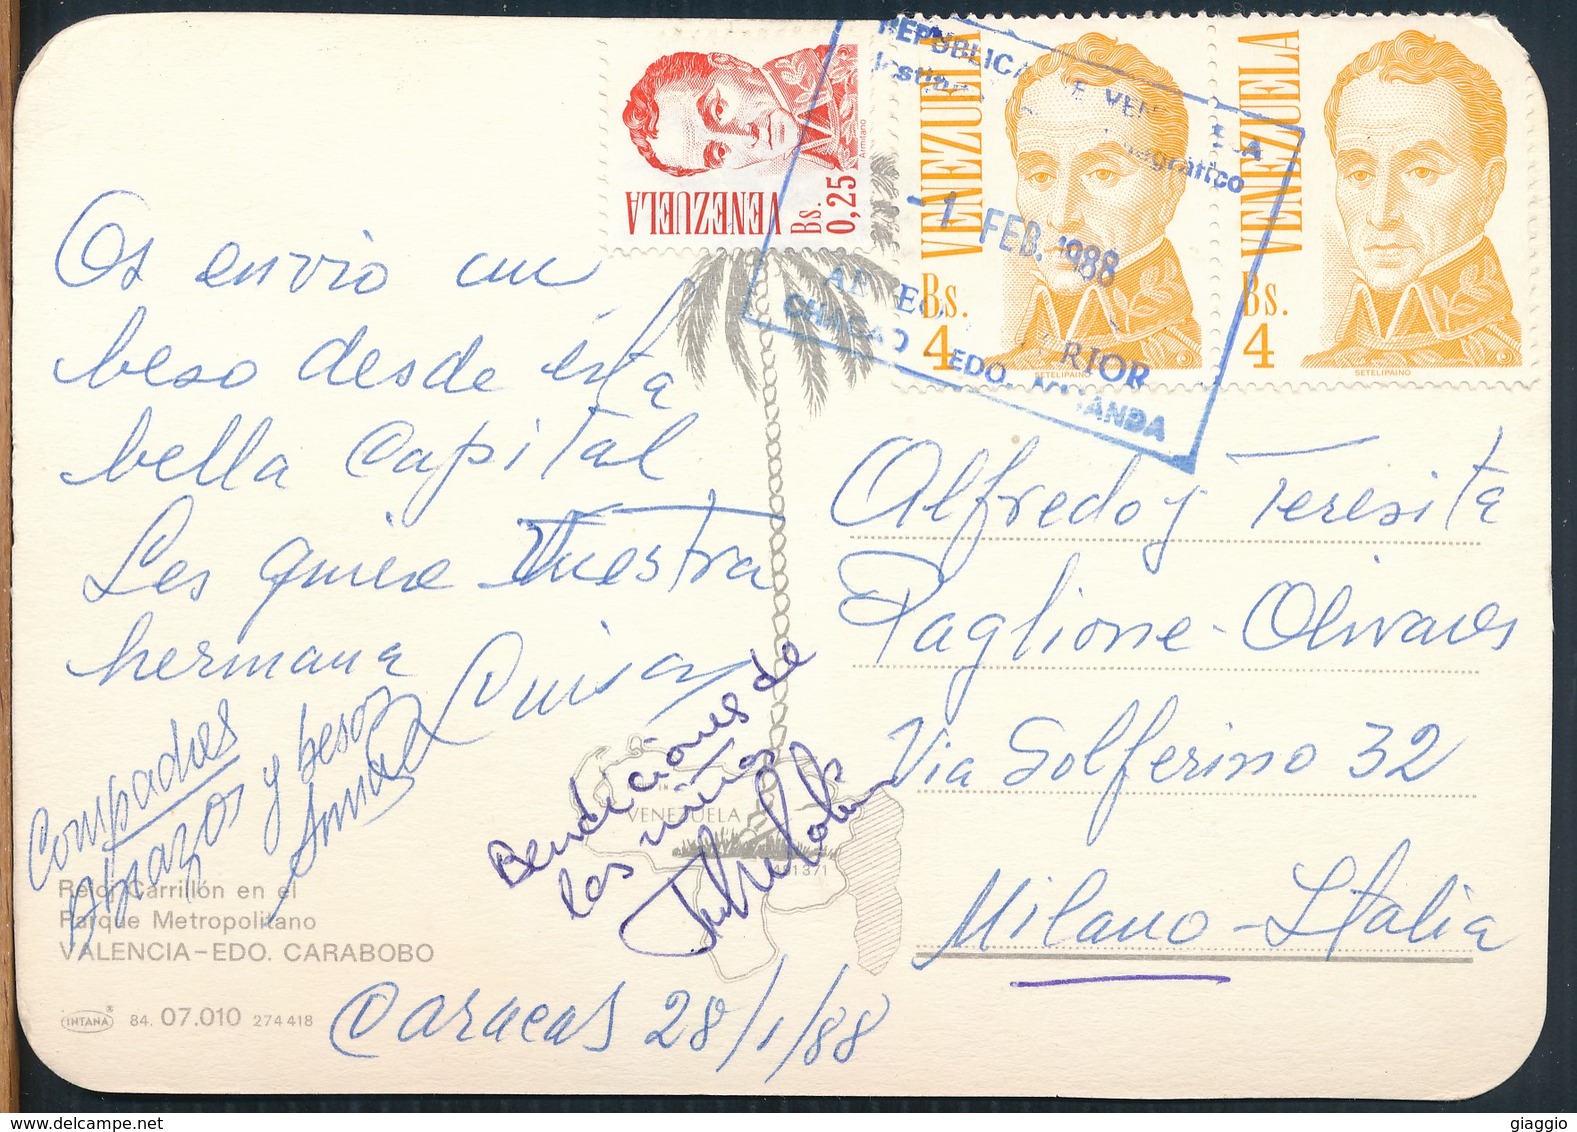 VENEZUELA
Bs.
0,25
Armitano
VENEZUELA
Bs.
4
SETELIPAINO
VENEZUELA
Bs.
4
SETELIPAINO
REPUBLICA DE VENEZUELA
-1 FEB. 1988
CHACAO EDO. MIRANDA
Os envio un
beso desde ésta
bella Capital
Les quiere Vuestra
hermana Luisa
Compadres
Abrazos y besos
Bendiciones de
los niños
Caracas 28/1/88
Alfredo y Teresita
Paglione-Olivares
Via Solferino 32
Milano-Italia
VENEZUELA
Reloj Carrillón en el
Parque Metropolitano
VALENCIA-EDO. CARABOBO
INTANA® 84. 07.010 274418
giaggio